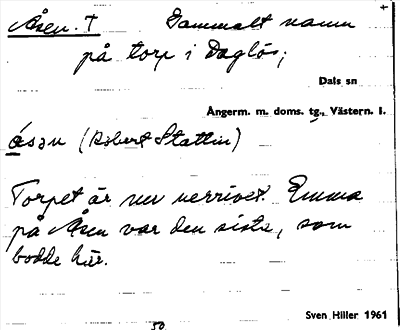 Åsen. T Gammalt namn
på torp i Daglös;
Dals sn
Ångerm. m. doms. tg., Västern. l.
åsən (Robert Stattin)
Torpet är nu nerrivet. Emma
på Åsen var den sista, som
bodde här.
Sven Hiller 1961
50